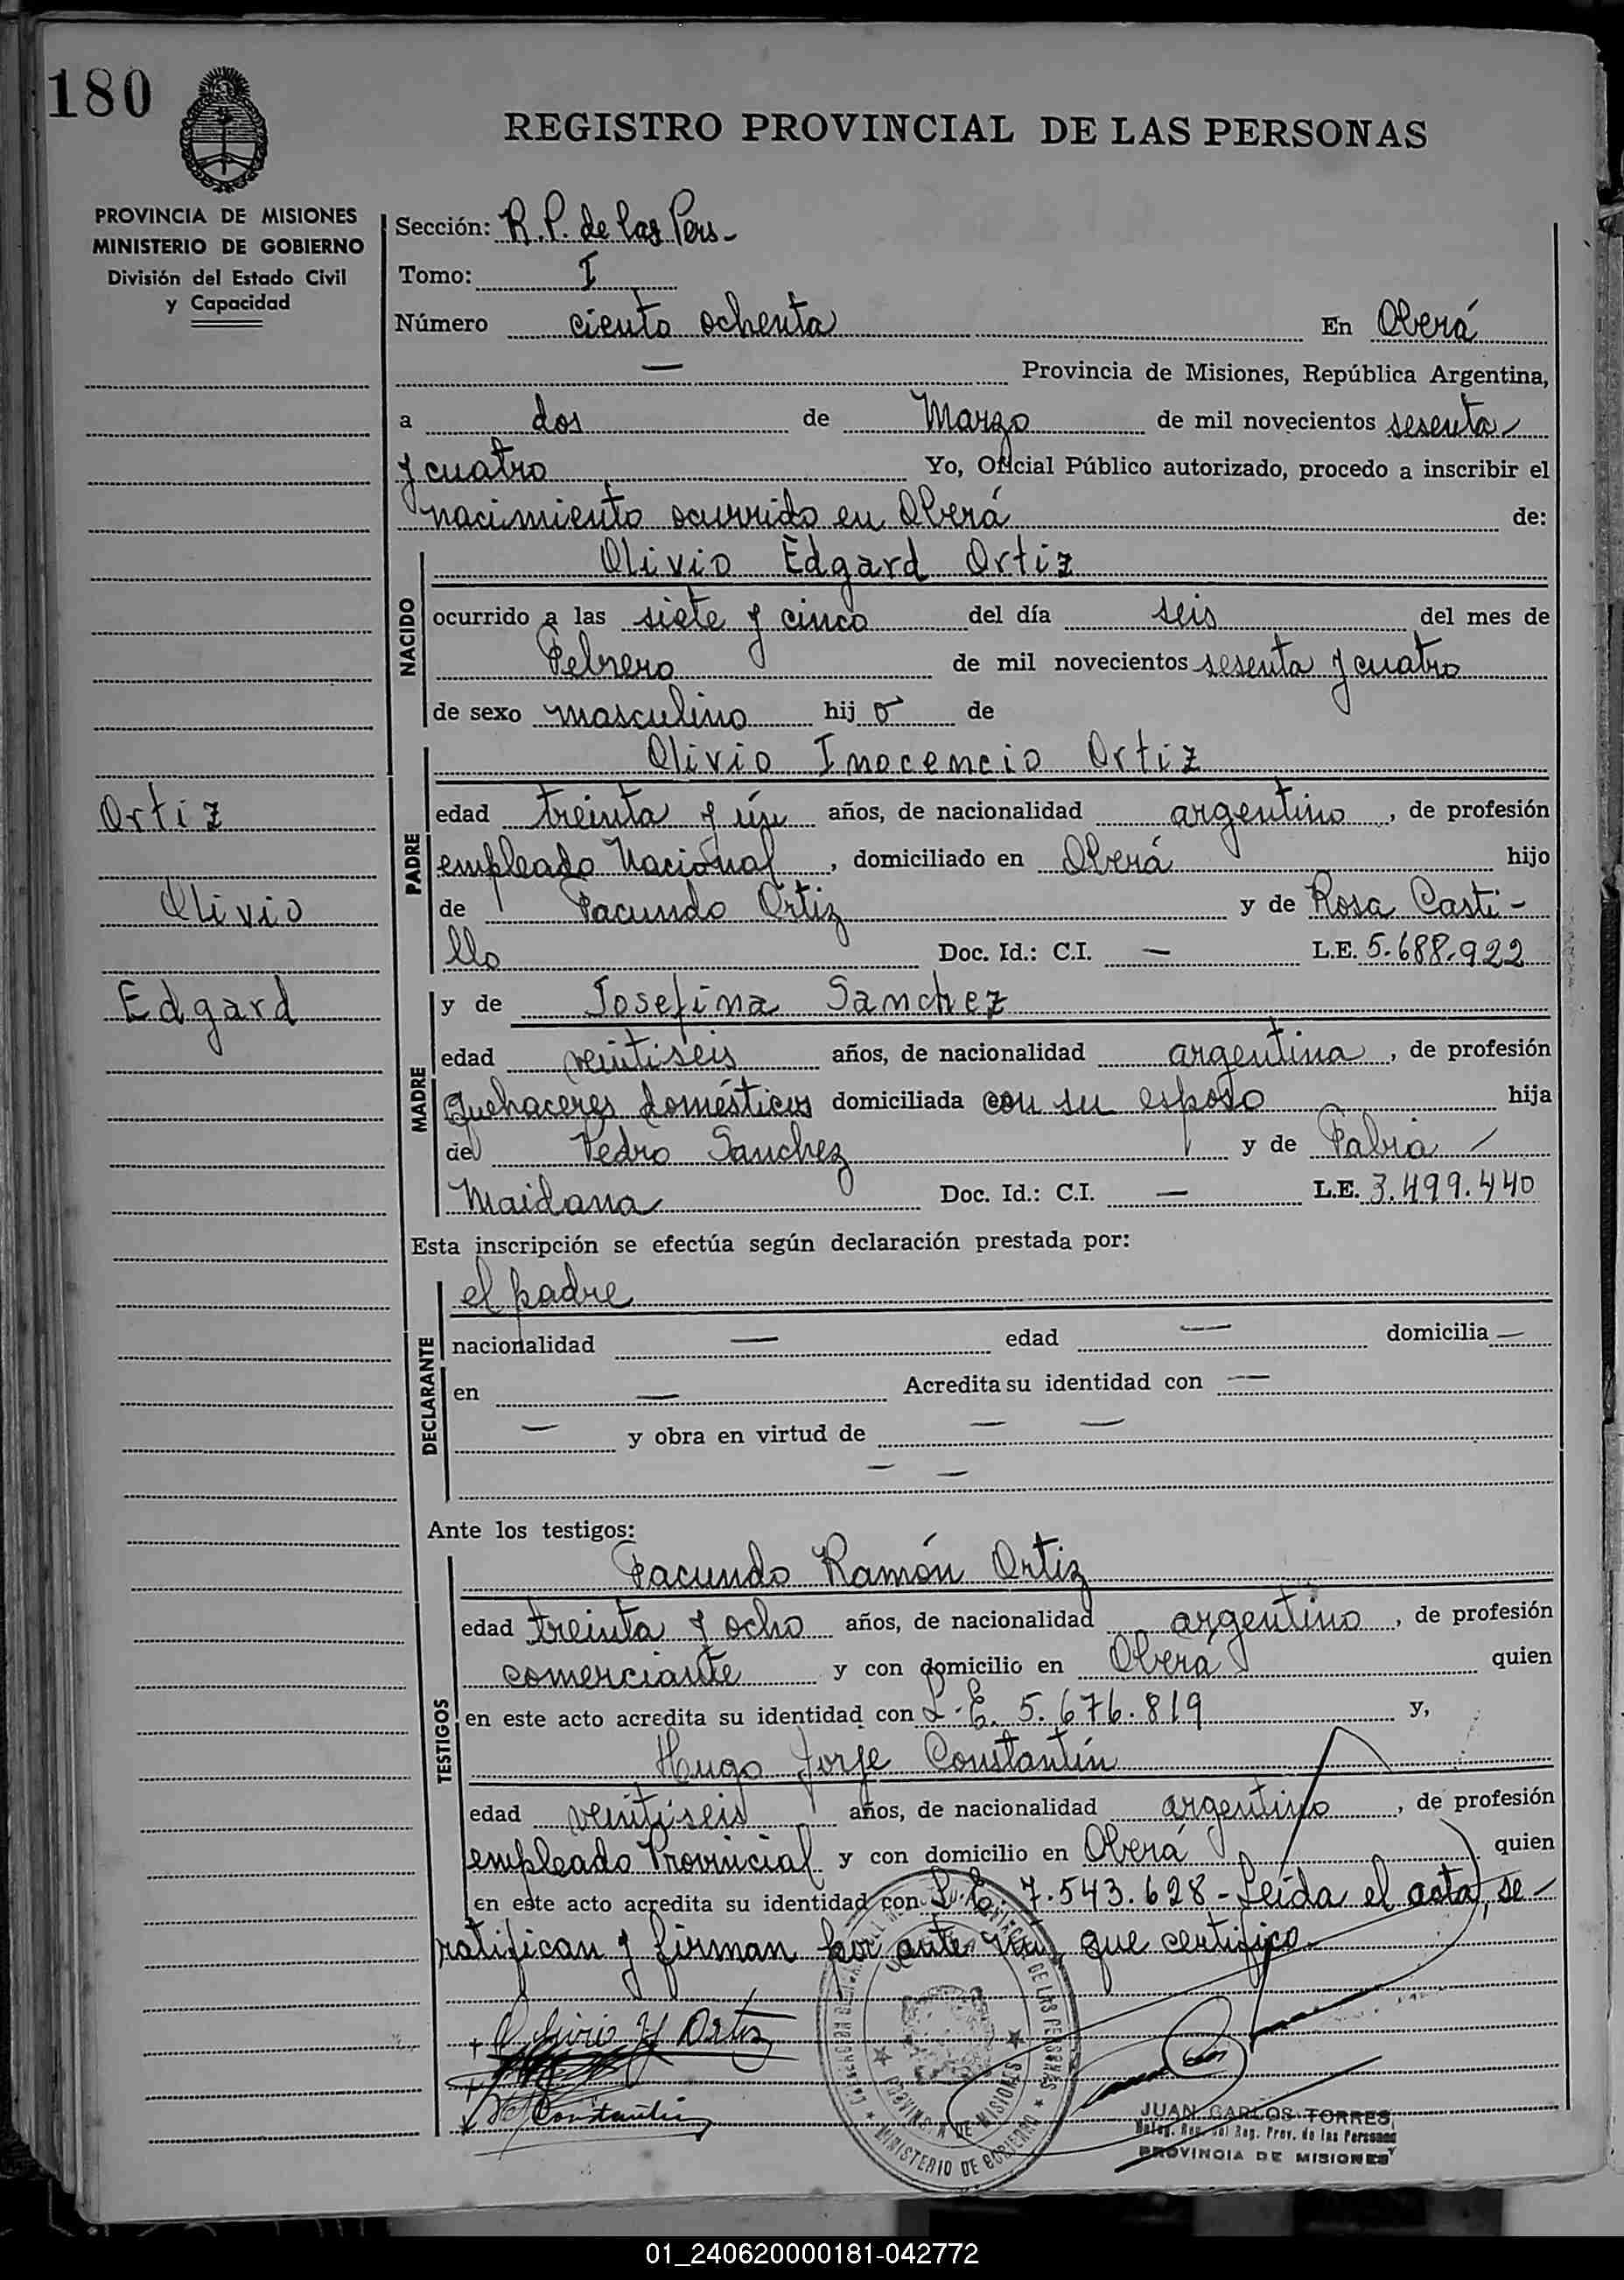 180
REGISTRO PROVINCIAL DE LAS PERSONAS
PROVINCIA DE MISIONES
MINISTERIO DE GOBIERNO
División del Estado Civil
y Capacidad
Sección: R.P. de las Pers-
Tomo: I
Número ciento ochenta En Oberá
— Provincia de Misiones, República Argentina,
a dos de Marzo de mil novecientos sesenta
y cuatro Yo, Oficial Público autorizado, procedo a inscribir el
nacimiento ocurrido en Oberá de:
NACIDO
Olivio Edgard Ortiz
ocurrido a las siete y cinco del día seis del mes de
Febrero de mil novecientos sesenta y cuatro
de sexo masculino hij o de
PADRE
Olivio Inocencio Ortiz
edad treinta y un años, de nacionalidad argentino, de profesión
empleado Nacional, domiciliado en Oberá hijo
de Facundo Ortiz y de Rosa Casti-
llo Doc. Id.: C.I. — L.E. 5.688.922
Ortiz
Olivio
Edgard
MADRE
y de Josefina Sanchez
edad veintiseis años, de nacionalidad argentina, de profesión
quehaceres domésticos domiciliada con su esposo hija
de Pedro Sanchez y de Fabia
Maidana Doc. Id.: C.I. — L.E. 3.499.440
Esta inscripción se efectúa según declaración prestada por:
DECLARANTE
el padre
nacionalidad — edad — domicilia —
en — Acredita su identidad con —
— y obra en virtud de — —
— —
Ante los testigos:
TESTIGOS
Facundo Ramón Ortiz
edad treinta y ocho años, de nacionalidad argentino, de profesión
comerciante y con domicilio en Oberá quien
en este acto acredita su identidad con L.E. 5.676.819 y,
Hugo Jorje Constantín
edad veintiseis años, de nacionalidad argentino, de profesión
empleado Provincial y con domicilio en Oberá quien
en este acto acredita su identidad con L.E. 7.543.628 - Leída el acta, se-
ratifican y firman por ante mi, que certifico.
Olivio Y Ortiz
Constantin
PROVINCIA DE MISIONES
MINISTERIO DE GOBIERNO
JUAN CARLOS TORRES
Reg. Prov. de las Personas
PROVINCIA DE MISIONES
01_240620000181-042772